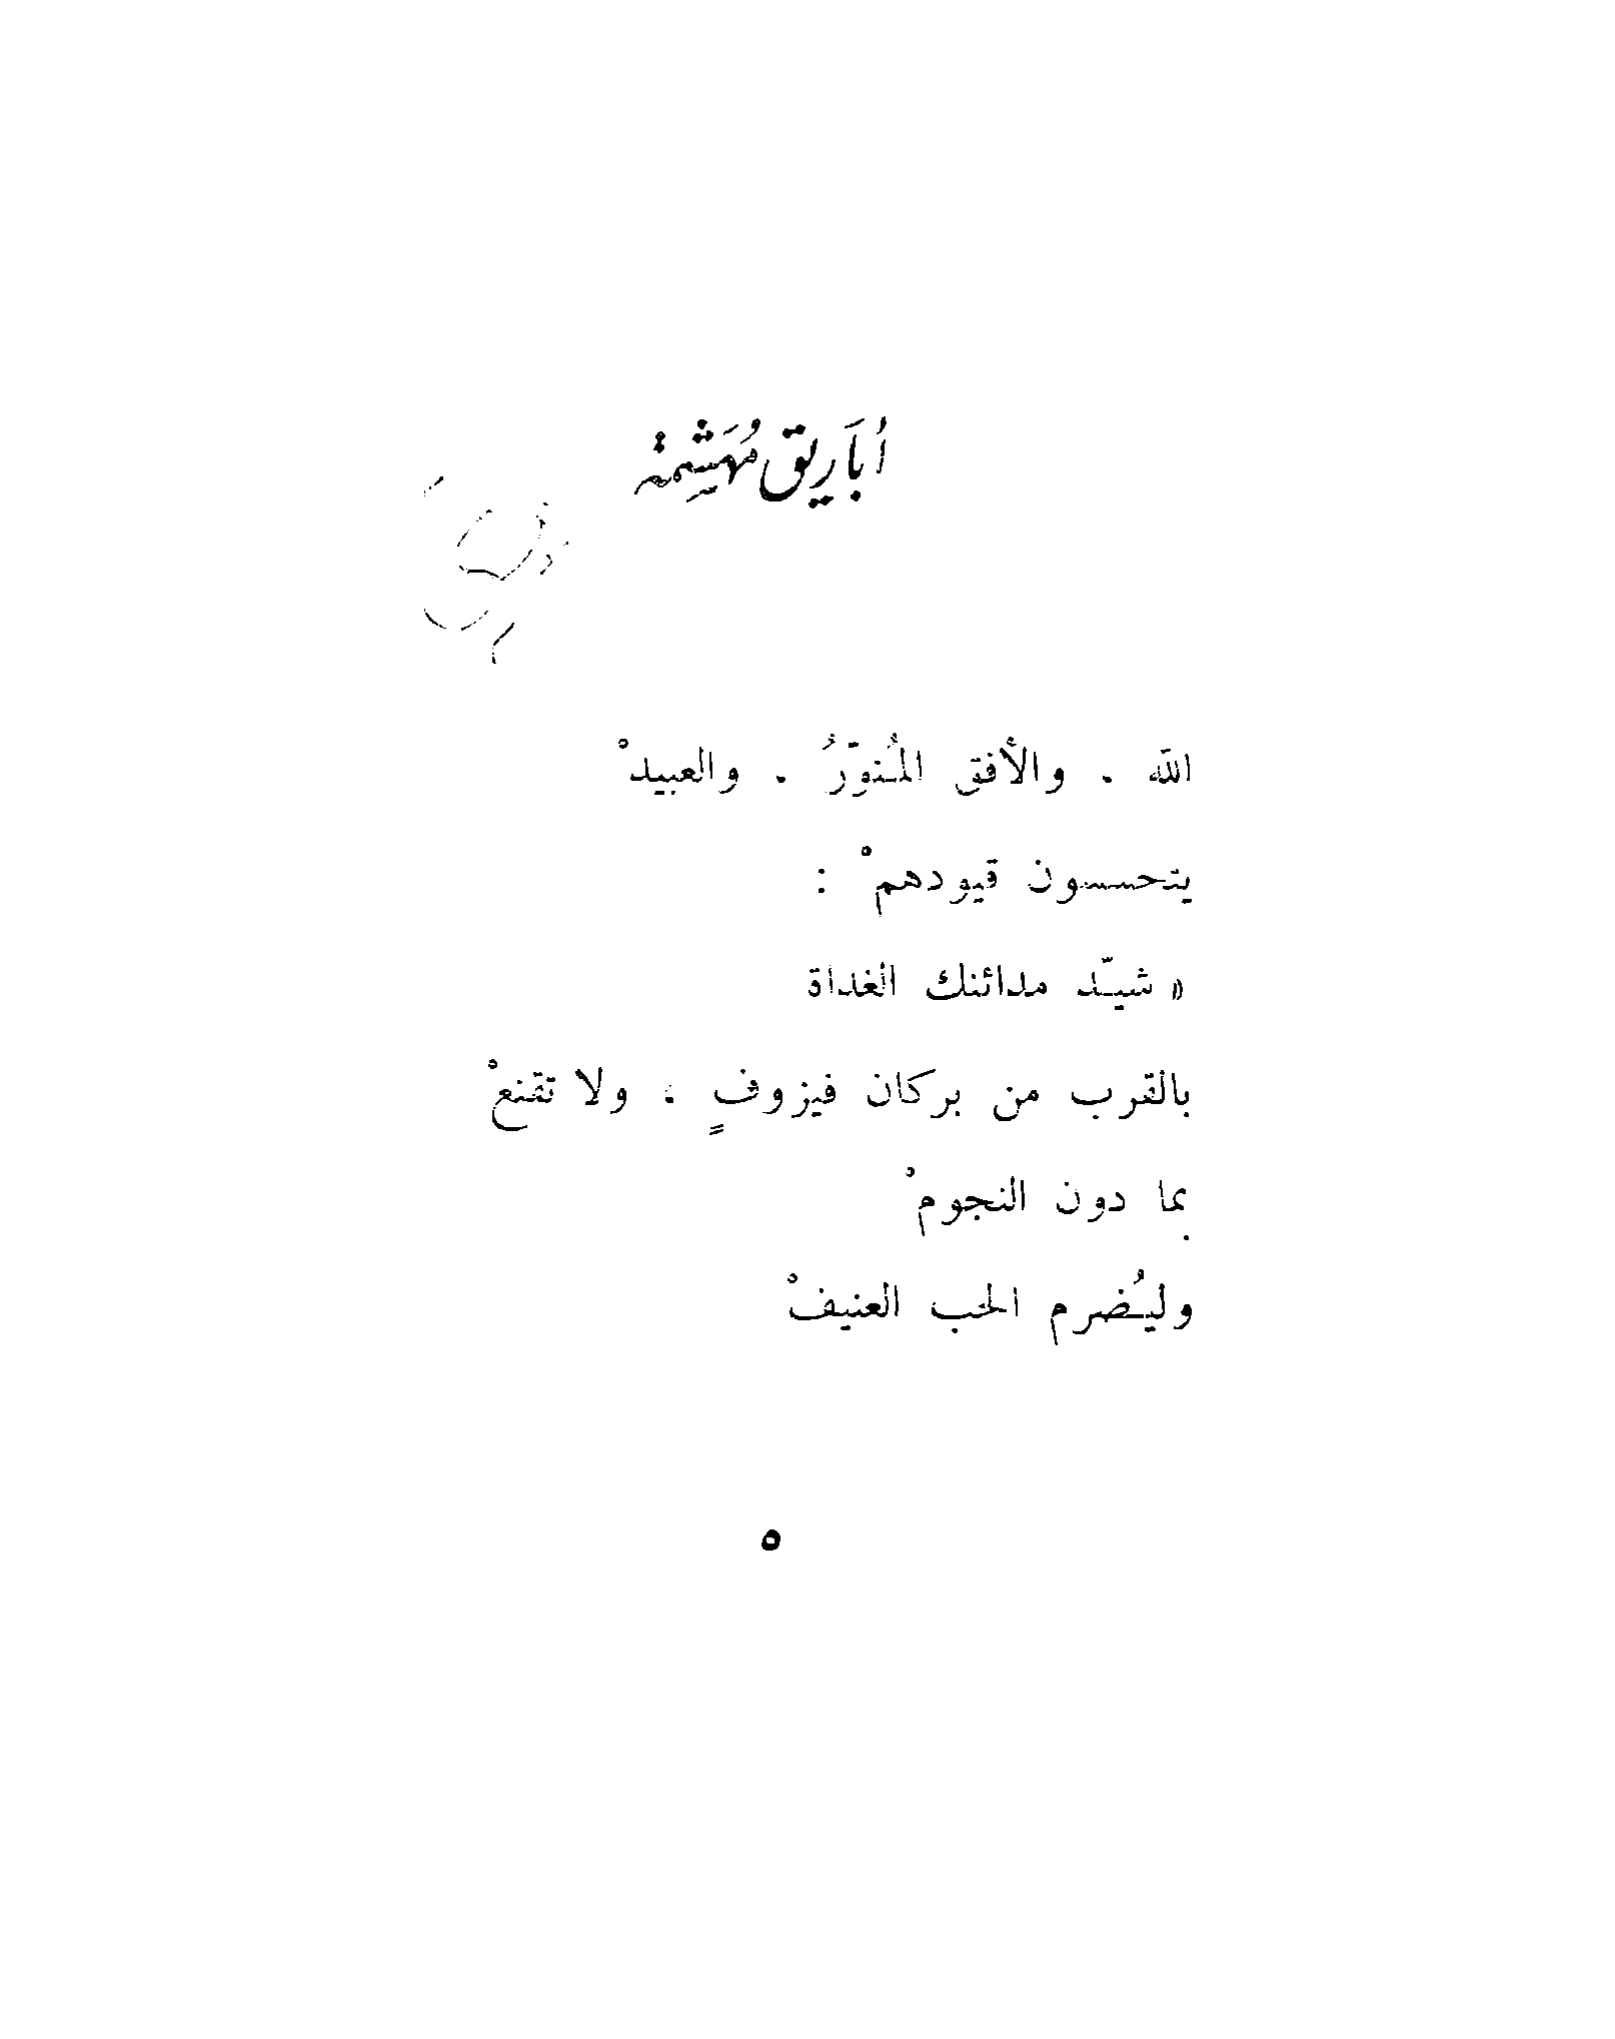 أَبَارِيق مُهَشَّمة
الله . والأفق المُنوّرُ . والعبيدْ
يتحسسون قيودهمْ :
« شيّد مدائنك الغداة
بالقرب من بركان فيزوفٍ ، ولا تقنعْ
بما دون النجومْ
وليُضرم الحب العنيفْ
٥